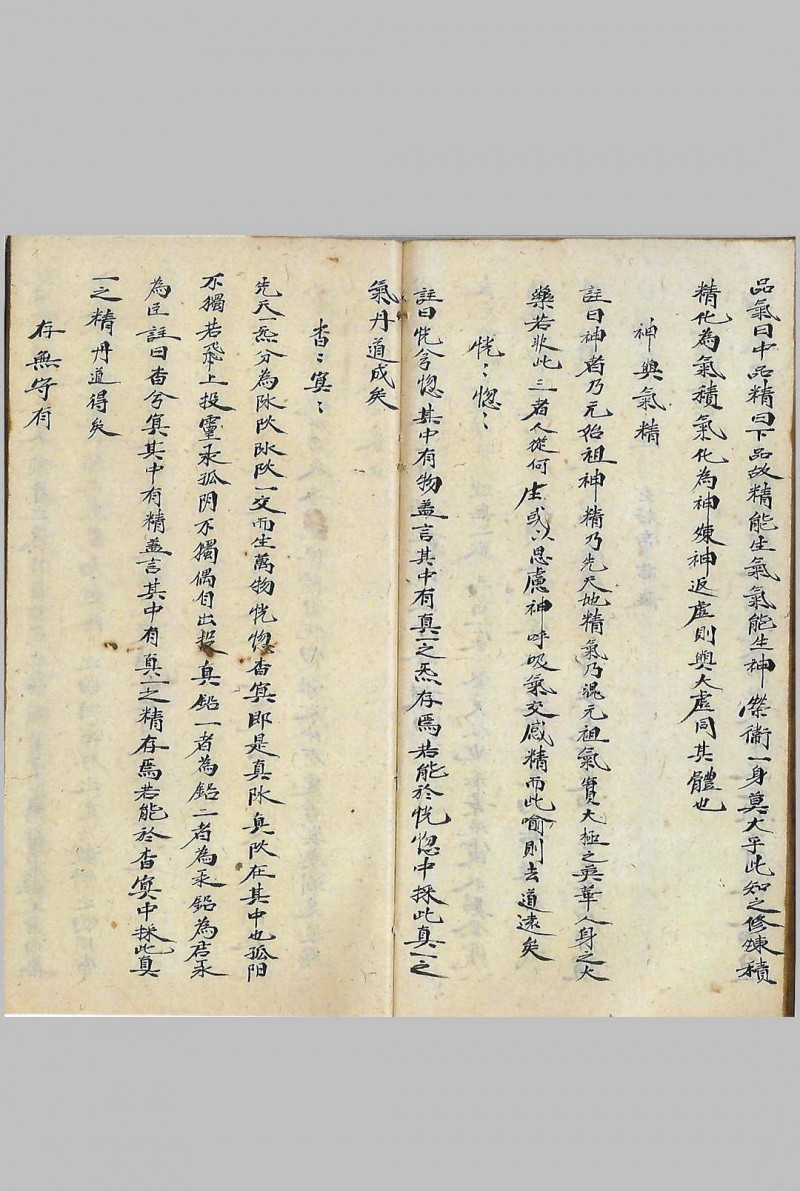 品氣曰中品精曰下品故精能生氣氣能生神榮衛一身莫大乎此知之修煉積
精化為氣積氣化為神煉神返虛則與太虛同其體也
神與氣精
註曰神者乃元始祖神精乃先天地精氣乃混元祖氣實大極之英華人身之大
藥若非此三者人從何生或以思慮神呼吸氣交感精而此喻則去道遠矣
恍〻惚〻
註曰恍兮惚其中有物盖言其中有真一之炁存焉若能於恍惚中採此真一之
氣丹道成矣
杳〻冥〻
先天一炁分為阥阦阥阦一交而生萬物恍惚杳冥即是真阥真阦在其中也孤阳
不獨若飛上投靈汞孤阴不獨偶自出投真鉛一者為鉛二者為汞鉛為君汞
為臣註曰杳兮冥其中有精盖言其中有真一之精存焉若能於杳冥中採此真
一之精丹道得矣
存無守有